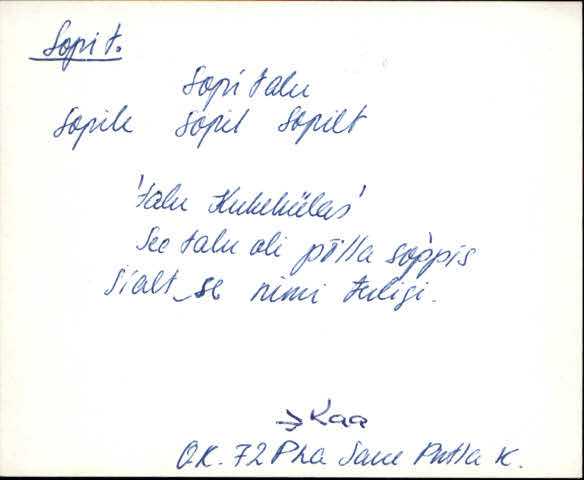 Sopi t.
Sopi talu
Sopile Sopil Sopilt
'talu Kukekülas'
See talu oli põlla sòppis
Sialt se nimi tuligi.
→ Kaa
OK. 72 Pha Saue Putla k.